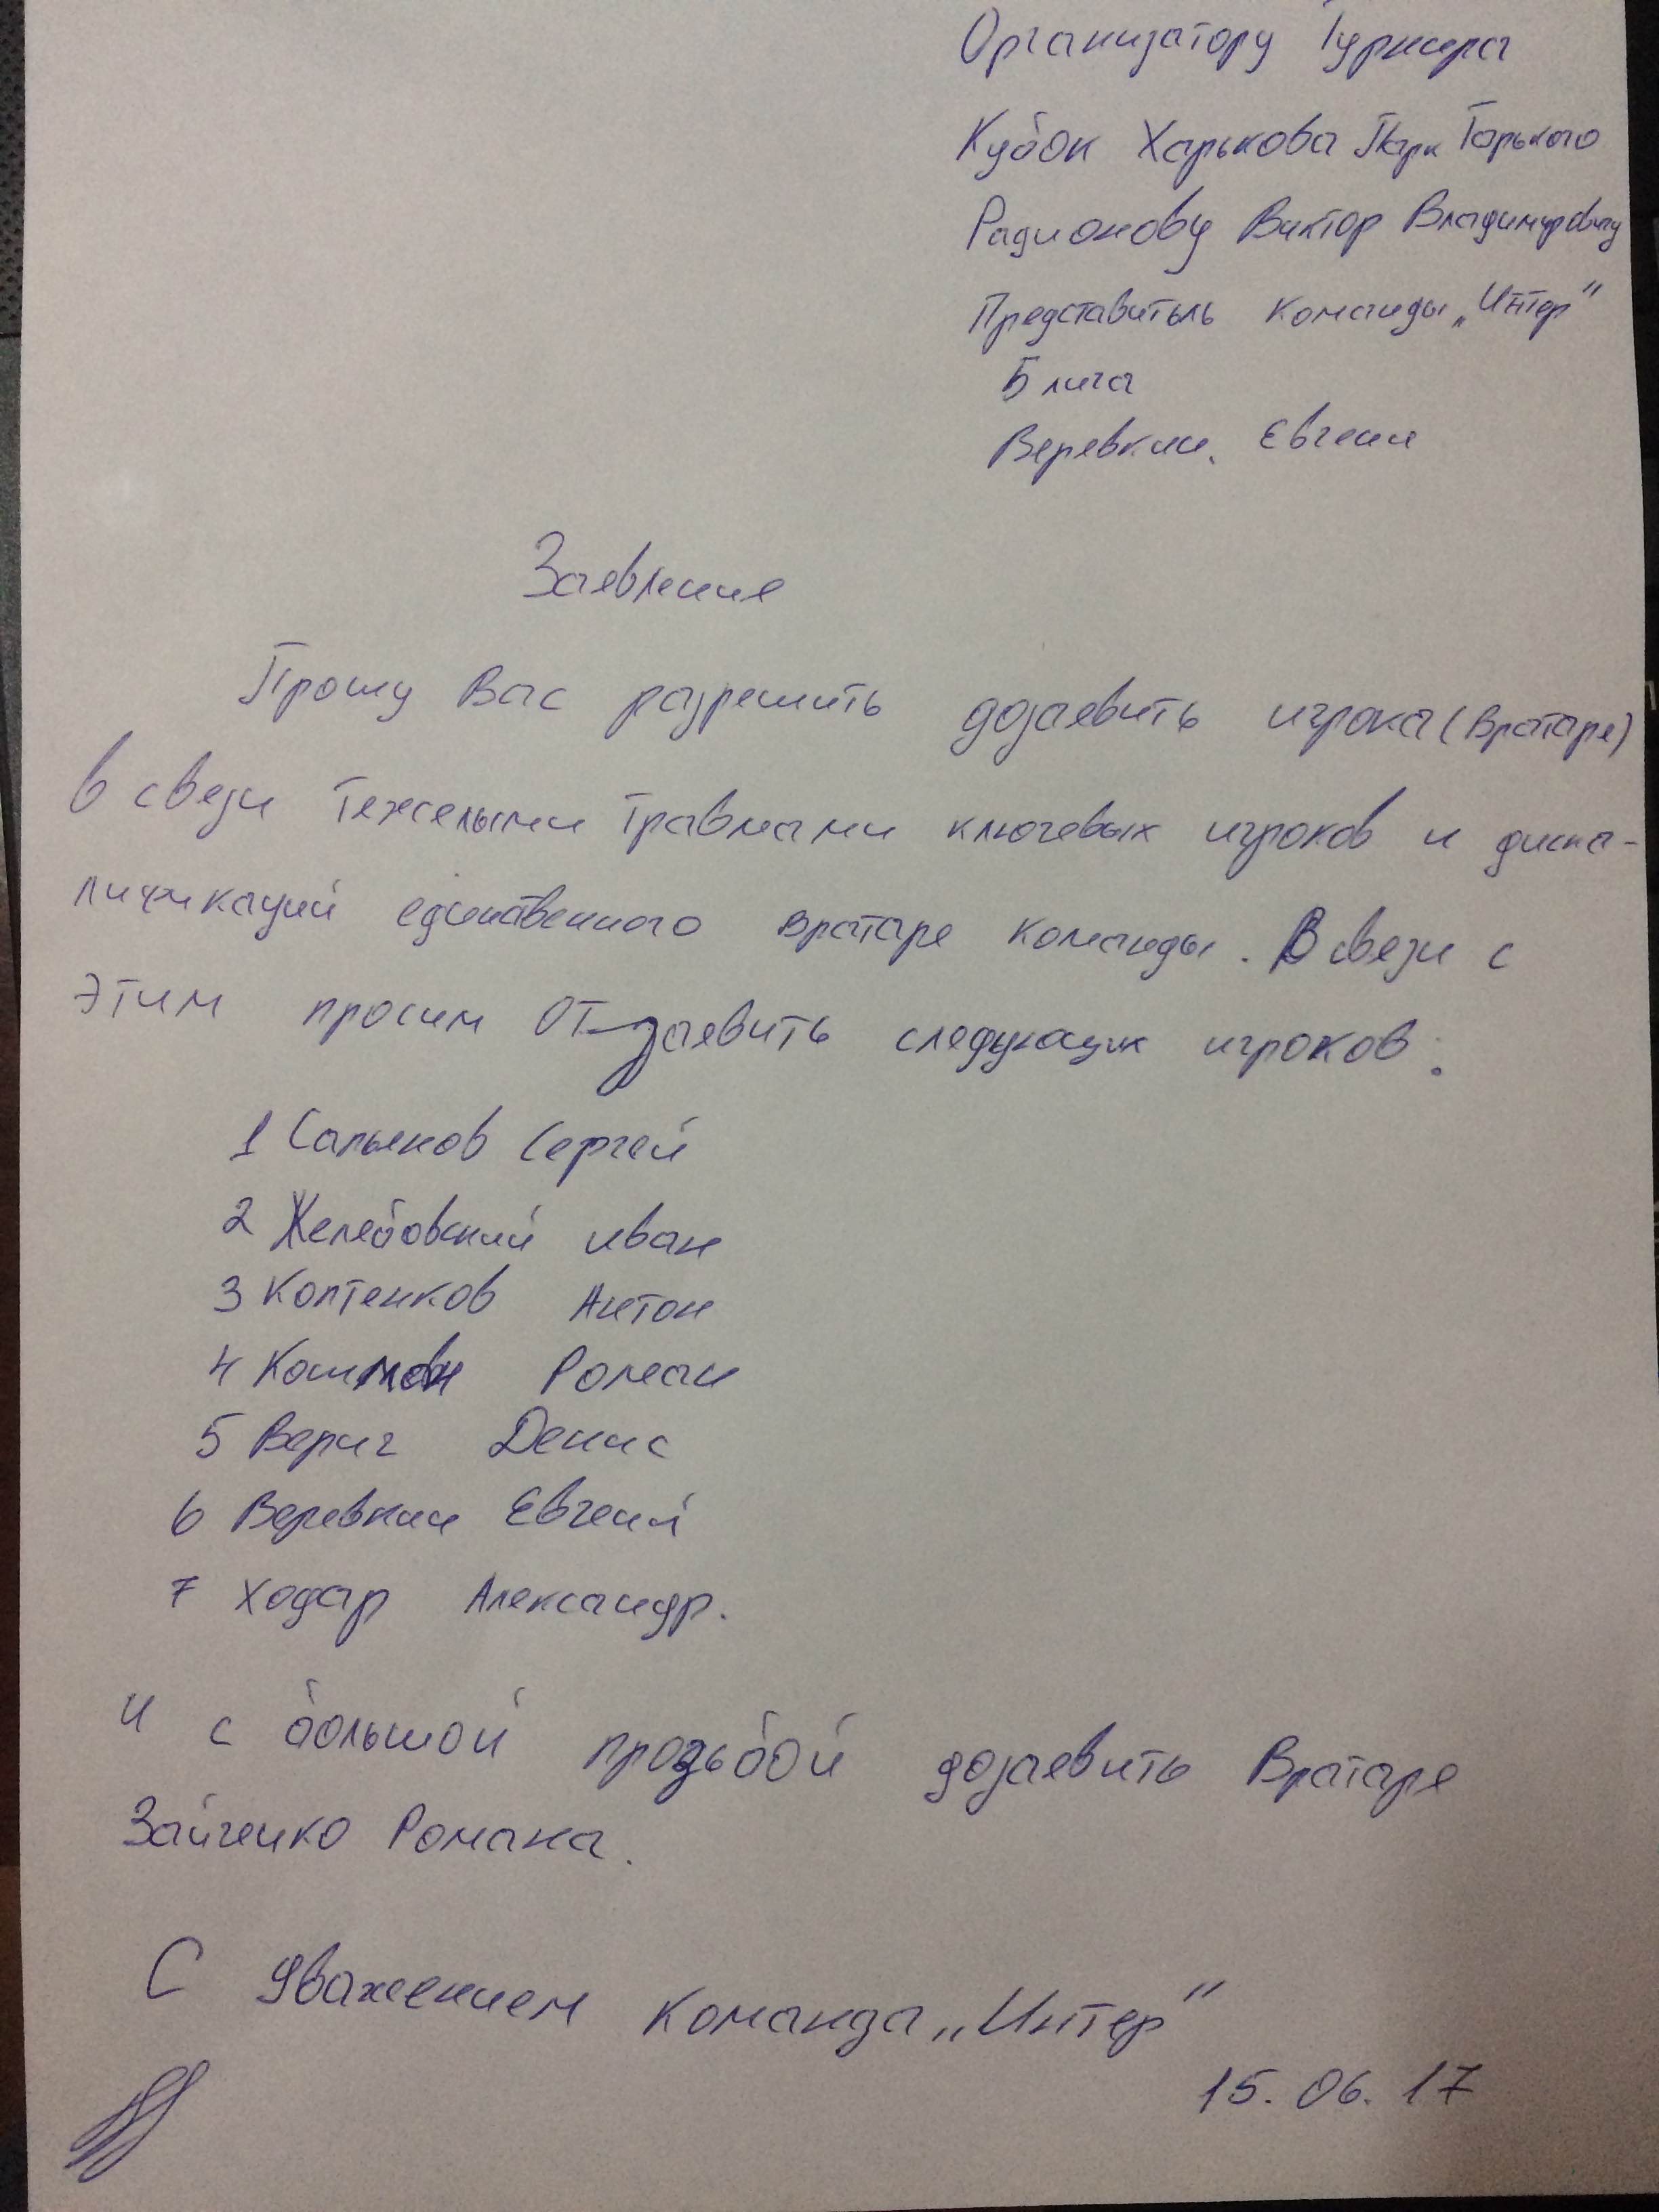 Организатору Турнира
Кубок Харькова Парк Горького
Радионову Виктор Владимировичу
Представитель команды „Интер"
Б лига
Веревкин. Евгени
Заявление
Прошу Вас разрешить дозаевить игрока (Вратаре)
в свези тежелыми травмами ключевых игроков и диска-
лификаций единственного вратаре команды. В свези с
этим просим отзаевить следующих игроков:
1 Сальников Сергей
2 Желебовский иван
3 Коптенков Антон
4 Роман
5 Вериг Денис
6 Веревкин Евгений
7 Ходар Александр.
и с большой прозьбой дозаевить Вратаре
Зайченко Романа.
С Уважением команда „Интер"
15.06.17